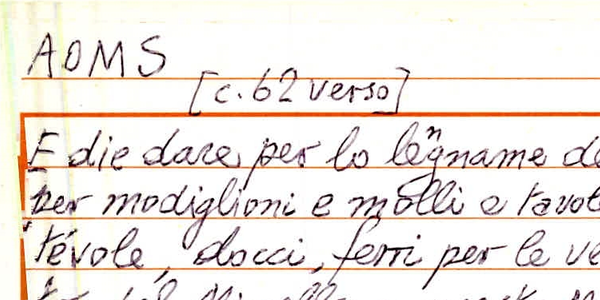 AOMS
[c. 62 verso]
E die dare per lo legname de
per modiglioni e molli e tavol
tévole, docci, ferri per le ve